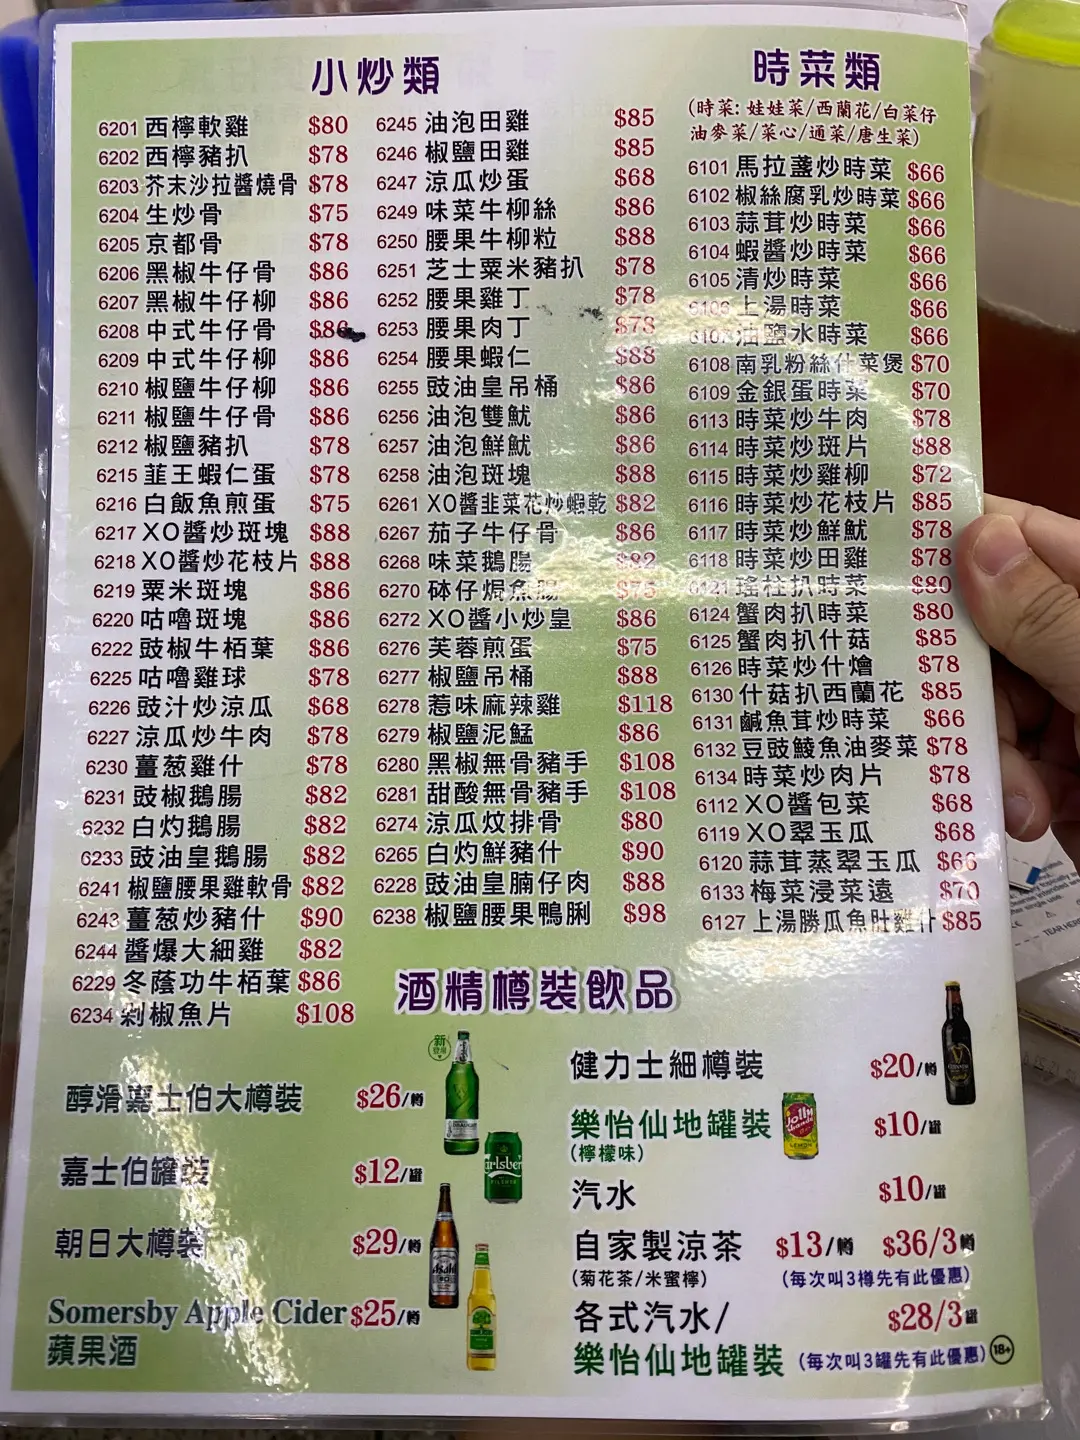 小炒類
6201 西檸軟雞 $80
6202 西檸豬扒 $78
6203 芥末沙拉醬燒骨 $78
6204 生炒骨 $75
6205 京都骨 $78
6206 黑椒牛仔骨 $86
6207 黑椒牛仔柳 $86
6208 中式牛仔骨 $86
6209 中式牛仔柳 $86
6210 椒鹽牛仔柳 $86
6211 椒鹽牛仔骨 $86
6212 椒鹽豬扒 $78
6215 韮王蝦仁蛋 $78
6216 白飯魚煎蛋 $75
6217 XO醬炒斑塊 $88
6218 XO醬炒花枝片 $88
6219 粟米斑塊 $86
6220 咕嚕斑塊 $86
6222 豉椒牛栢葉 $86
6225 咕嚕雞球 $78
6226 豉汁炒涼瓜 $68
6227 涼瓜炒牛肉 $78
6230 薑葱雞什 $78
6231 豉椒鵝腸 $82
6232 白灼鵝腸 $82
6233 豉油皇鵝腸 $82
6241 椒鹽腰果雞軟骨 $82
6243 薑葱炒豬什 $90
6244 醬爆大細雞 $82
6229 冬蔭功牛栢葉 $86
6234 剁椒魚片 $108
6245 油泡田雞 $85
6246 椒鹽田雞 $85
6247 涼瓜炒蛋 $68
6249 味菜牛柳絲 $86
6250 腰果牛柳粒 $88
6251 芝士粟米豬扒 $78
6252 腰果雞丁 $78
6253 腰果肉丁 $78
6254 腰果蝦仁 $88
6255 豉油皇吊桶 $86
6256 油泡雙魷 $86
6257 油泡鮮魷 $86
6258 油泡斑塊 $88
6261 XO醬韭菜花炒蝦乾 $82
6267 茄子牛仔骨 $86
6268 味菜鵝腸 $82
6270 砵仔焗魚腸 $75
6272 XO醬小炒皇 $86
6276 芙蓉煎蛋 $75
6277 椒鹽吊桶 $88
6278 惹味麻辣雞 $118
6279 椒鹽泥鯭 $86
6280 黑椒無骨豬手 $108
6281 甜酸無骨豬手 $108
6274 涼瓜炆排骨 $80
6265 白灼鮮豬什 $90
6228 豉油皇腩仔肉 $88
6238 椒鹽腰果鴨脷 $98
時菜類
(時菜: 娃娃菜/西蘭花/白菜仔
油麥菜/菜心/通菜/唐生菜)
6101 馬拉盞炒時菜 $66
6102 椒絲腐乳炒時菜 $66
6103 蒜茸炒時菜 $66
6104 蝦醬炒時菜 $66
6105 清炒時菜 $66
6106 上湯時菜 $66
6107 油鹽水時菜 $66
6108 南乳粉絲什菜煲 $70
6109 金銀蛋時菜 $70
6113 時菜炒牛肉 $78
6114 時菜炒斑片 $88
6115 時菜炒雞柳 $72
6116 時菜炒花枝片 $85
6117 時菜炒鮮魷 $78
6118 時菜炒田雞 $78
6121 瑤柱扒時菜 $80
6124 蟹肉扒時菜 $80
6125 蟹肉扒什菇 $85
6126 時菜炒什燴 $78
6130 什菇扒西蘭花 $85
6131 鹹魚茸炒時菜 $66
6132 豆豉鯪魚油麥菜 $78
6134 時菜炒肉片 $78
6112 XO醬包菜 $68
6119 XO翠玉瓜 $68
6120 蒜茸蒸翠玉瓜 $66
6133 梅菜浸菜遠 $70
6127 上湯勝瓜魚肚雞什 $85
酒精樽裝飲品
醇滑嘉士伯大樽裝 $26/樽
嘉士伯罐裝 $12/罐
朝日大樽裝 $29/樽
Somersby Apple Cider $25/樽
蘋果酒
健力士細樽裝 $20/樽
樂怡仙地罐裝 $10/罐
(檸檬味)
汽水 $10/罐
自家製涼茶 $13/樽 $36/3樽
(菊花茶/米蜜檸) (每次叫3樽先有此優惠)
各式汽水/ $28/3罐
樂怡仙地罐裝 (每次叫3罐先有此優惠) 18+